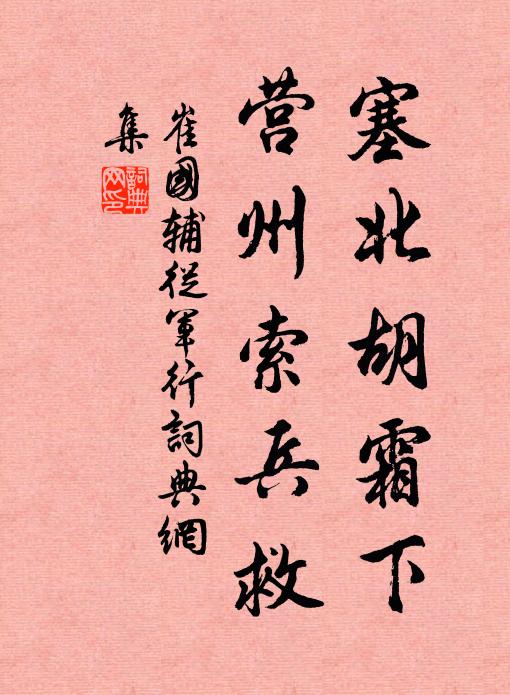 塞北胡霜下
营州索兵救
崔國辅從軍行詞典網
集
詞典
网印